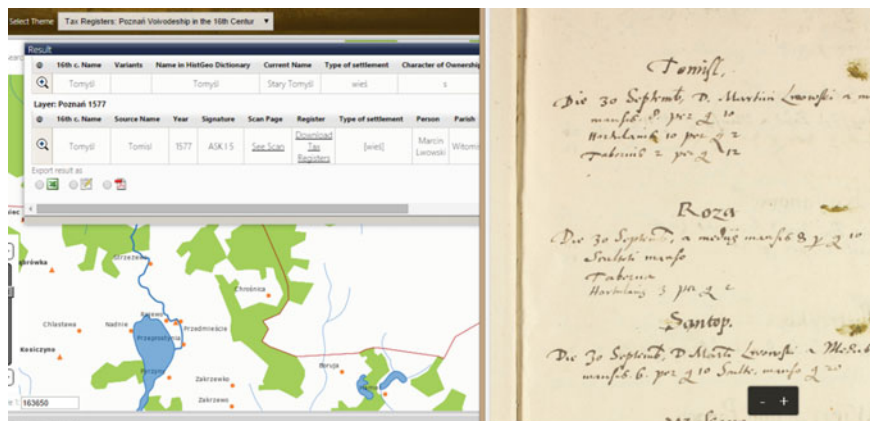 Select Theme Tax Registers: Poznań Voivodeship in the 16th Centur
Result
16th c. Name Variants Name in HistGeo Dictionary Current Name Type of settlement Character of Ownership
Tomyśl Tomyśl Stary Tomyśl wieś s
Layer: Poznań 1577
16th c. Name Source Name Year Signature Scan Page Register Type of settlement Person Parish
Tomyśl Tomisl 1577 ASK I 5 See Scan Download Tax Registers [wieś] Marcin Lwowski Witomi
Export result as
Strzeżewo
Chrośnica
Chlastawa
Nadnie
Przedmieście
Przeprostynia
Kosiczyno
Zakrzewko
Zakrzewo
Boruja
163650
Tomisl,
Die 30 Septemb, D. Martini Lwowski a
mansis 8 per g 10
Hortulanis 10 per g 2
Tabernis 2 per g 12
Roza
Die 30 Septemb, a medijs mansis 8 p g 10
Sculteti manso
Taberna
Hortulanis 3 per g 2
Santop.
Die 30 Septemb, D Marti Lwowski a
mansis 6 per g 10 Sculte. manso g 20
- +